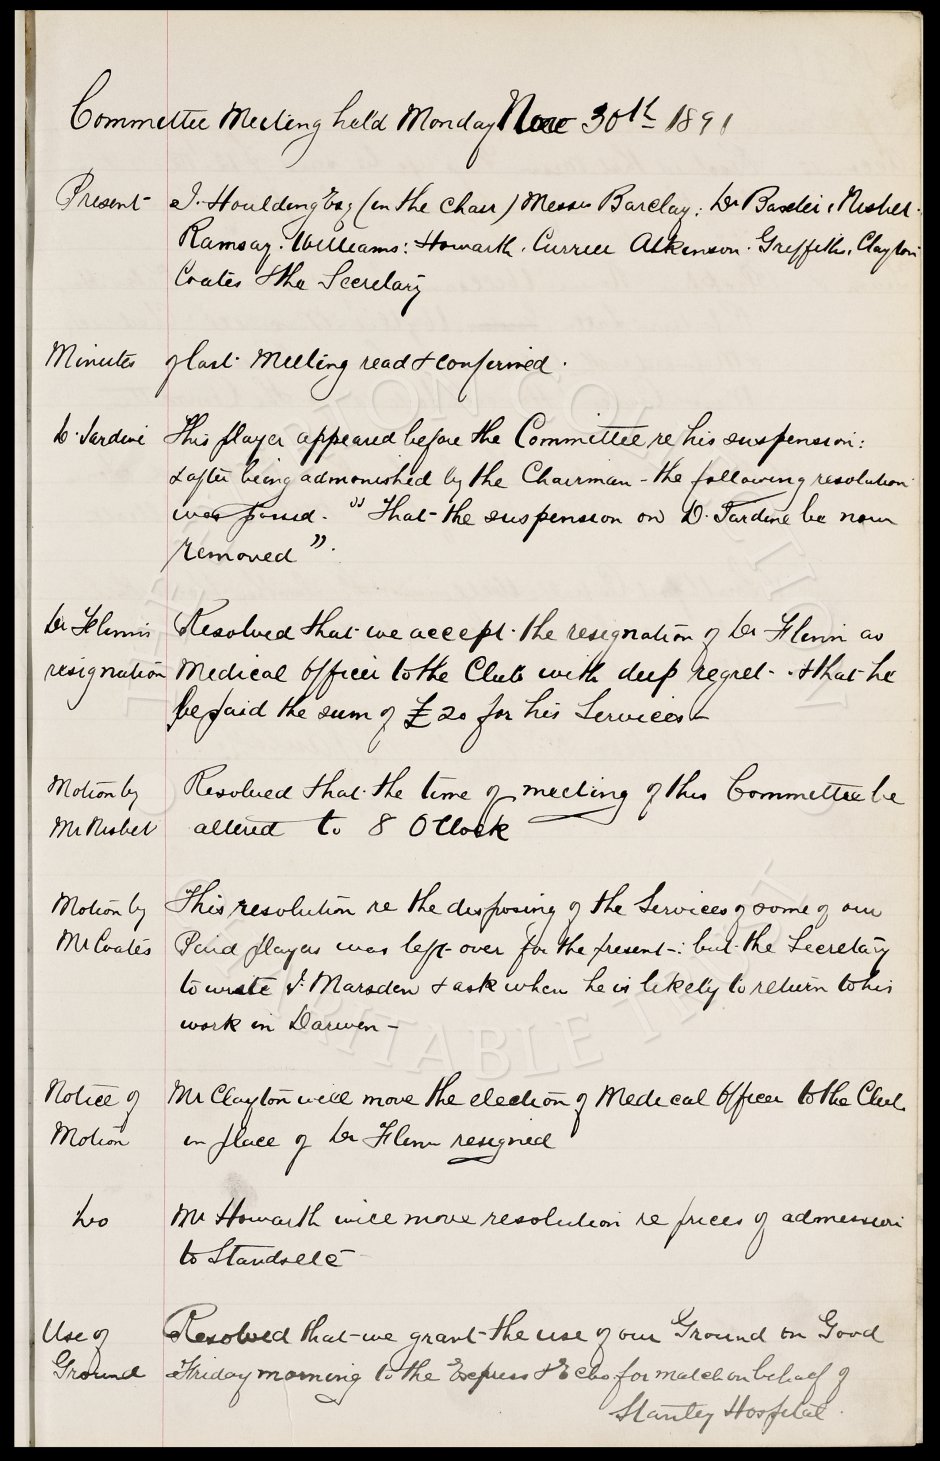 Committee Meeting held Monday Nov 30th 1891
Present J. Houlding Esq (in the chair) Messrs Barclay; Dr Baxter, Nisbet.
Ramsay. Williams: Howarth. Currier Atkinson. Griffiths, Clayton
Coates & the Secretary
Minutes of last Meeting read & confirmed.
D. Jardine This player appeared before the Committee re his suspension:
& after being admonished by the Chairman - the following resolution
was passed. "That the suspension on D. Jardine be now
removed".
Dr Flinn's Resolved that we accept the resignation of Dr Flinn as
resignation Medical Officer to the Club with deep regret - & that he
be paid the sum of £20 for his Services -
Motion by Resolved that the time of meeting of this Committee be
Mr Nisbet altered to 8 OClock
Motion by This resolution re the disposing of the Services of some of our
Mr Coates Paid players was left over for the present -: but the Secretary
to write J. Marsden & ask when he is likely to return to his
work in Darwen -
Notice of Mr Clayton will move the election of Medical Officer to the Club
Motion in place of Dr Flinn resigned
Do Mr Howarth will move resolution re prices of admission
to Stands etc -
Use of Resolved that we grant the use of our Ground on Good
Ground Friday morning to the Express & Echo for match on behalf of
Stanley Hospital.
EVERTON COLLECTION
CHARITABLE TRUST